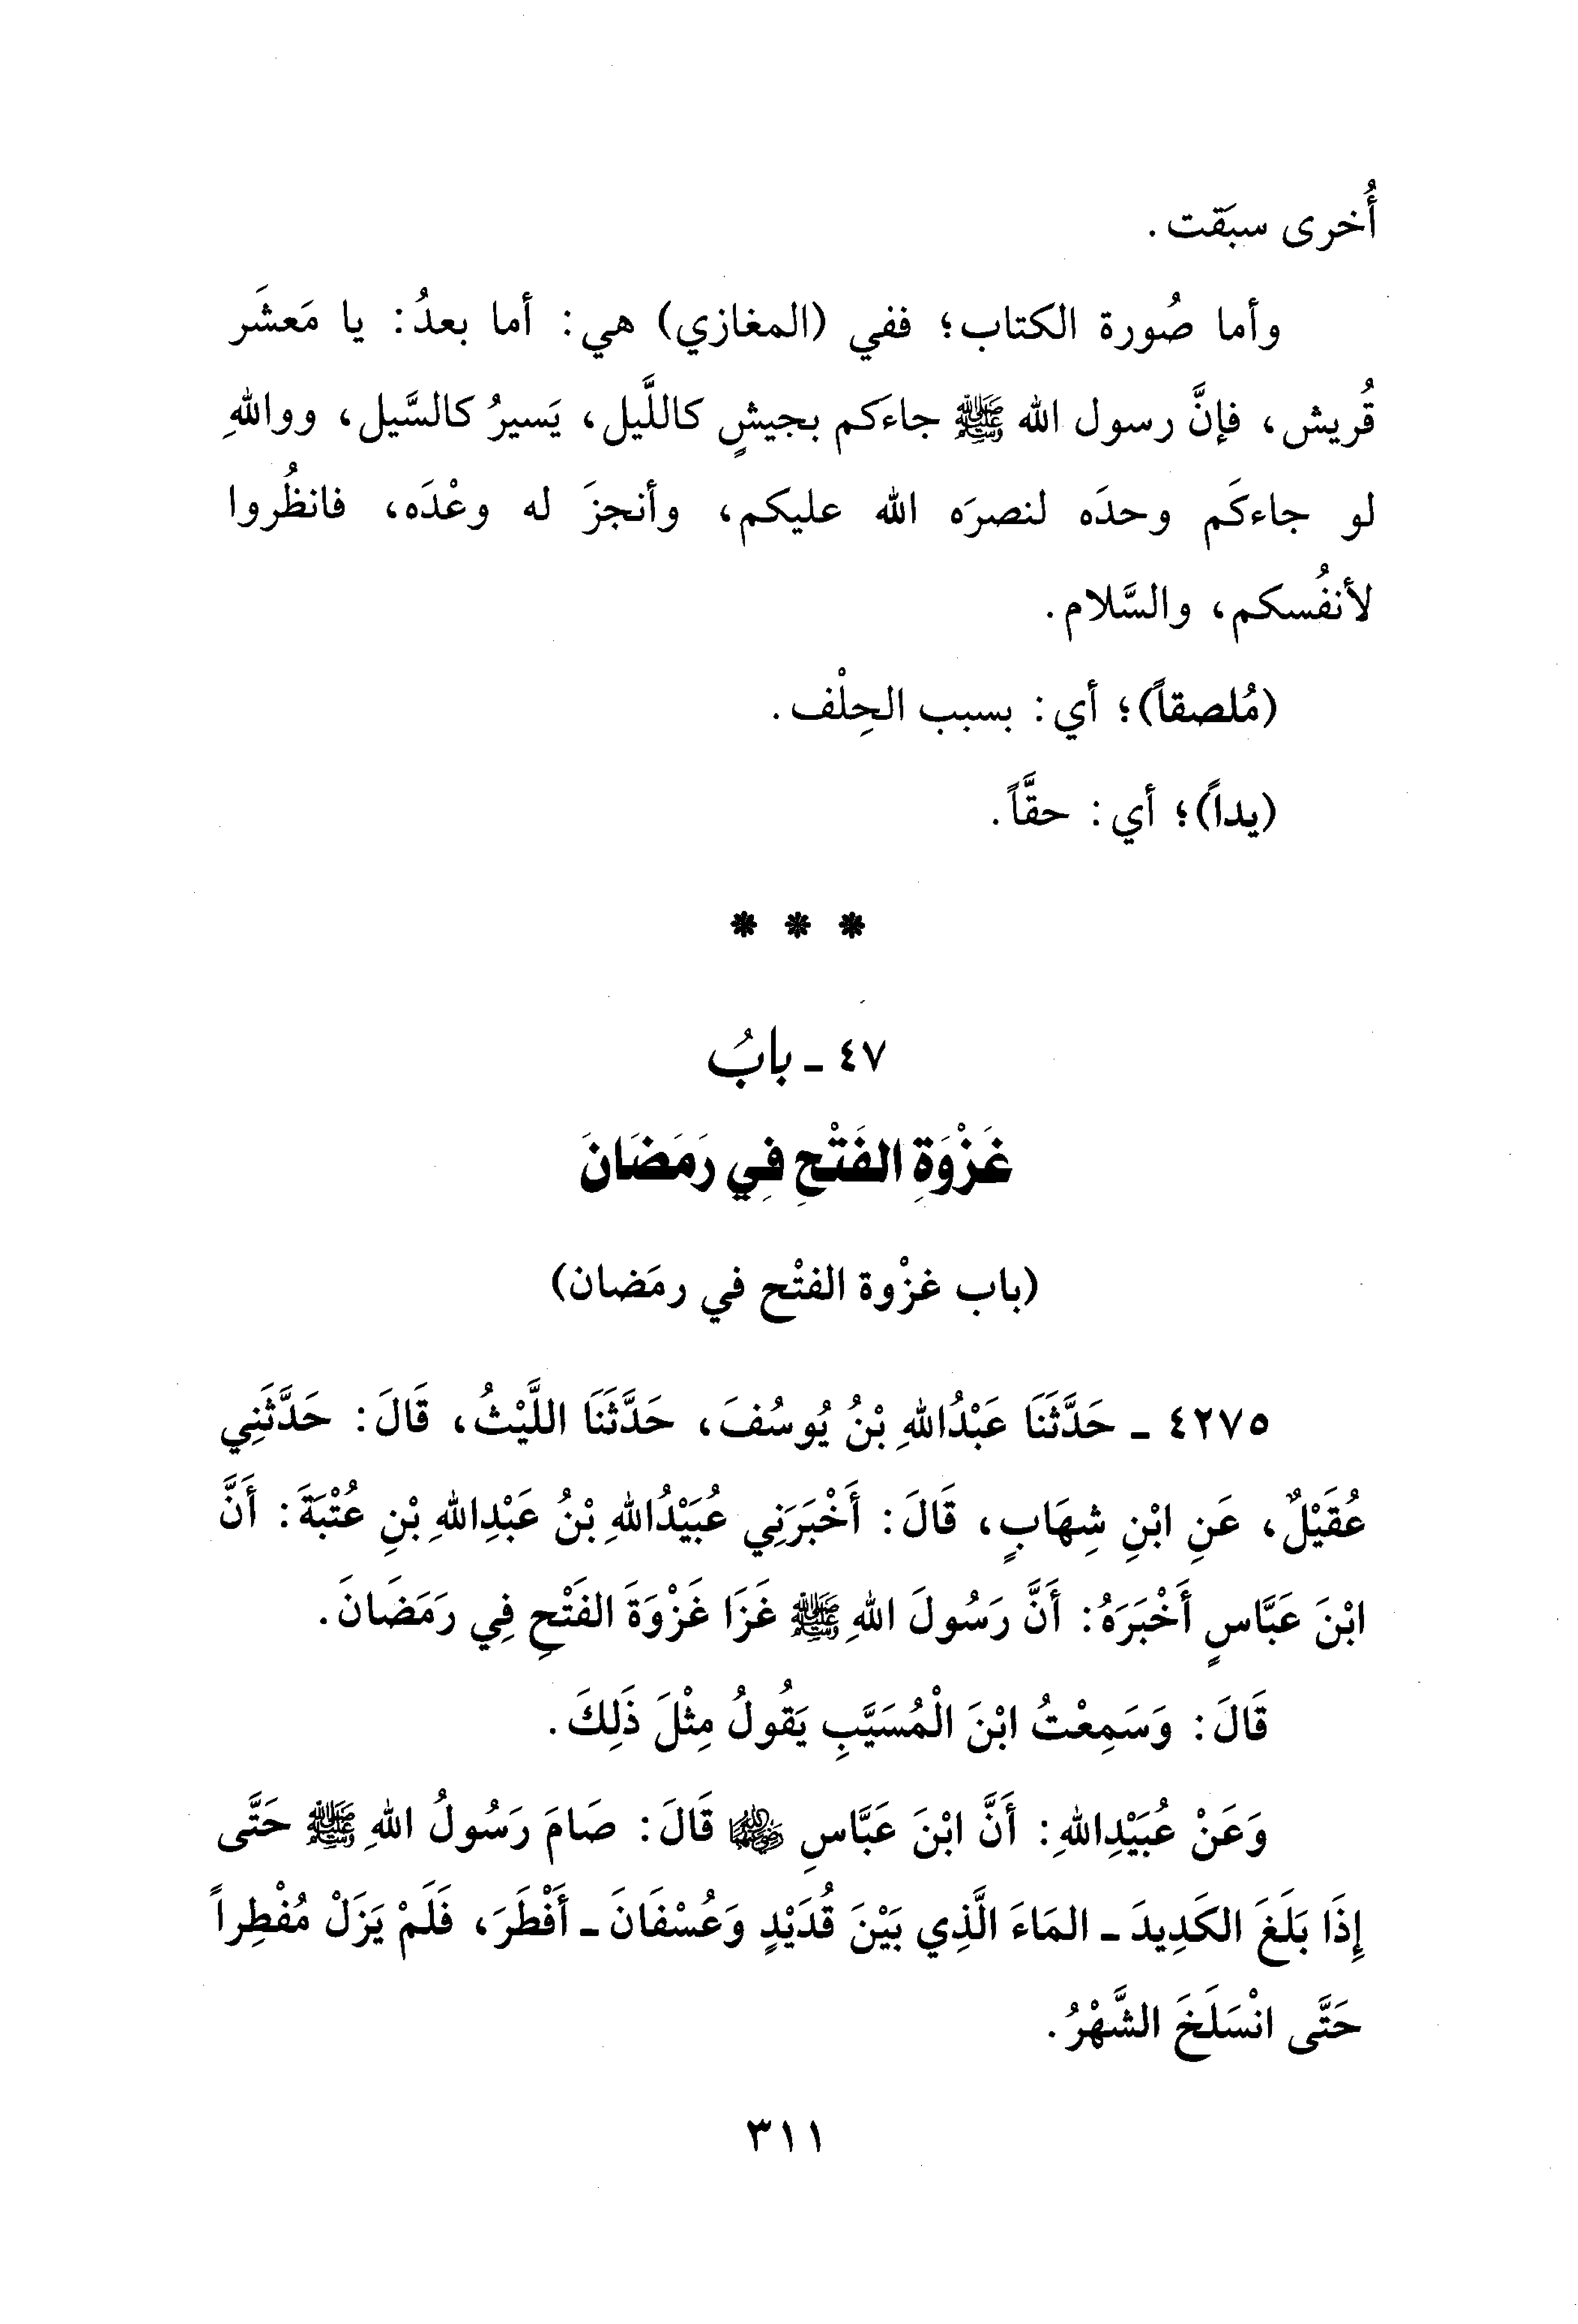 أُخرى سبَقت.
وأما صُورة الكتاب؛ ففي (المغازي) هي: أما بعدُ: يا مَعشَر
قُريش، فإنَّ رسول الله ﷺ جاءَكم بجيشٍ كاللَّيل، يَسيرُ كالسَّيل، وواللهِ
لو جاءكَم وحدَه لنصرَه الله عليكم، وأنجزَ له وعْدَه، فانظُروا
لأنفُسكم، والسَّلام.
(مُلصقاً)؛ أي: بسبب الحِلْف.
(يداً)؛ أي: حقَّاً.
* * *
٤٧ ـ بابُ
غَزْوَةِ الفَتْحِ فِي رَمَضَانَ
(باب غزْوة الفتْح في رمَضان)
٤٢٧٥ ـ حَدَّثَنَا عَبْدُاللهِ بْنُ يُوسُفَ، حَدَّثَنَا اللَّيْثُ، قَالَ: حَدَّثَنِي
عُقَيْلٌ، عَنِ ابْنِ شِهَابٍ، قَالَ: أَخْبَرَنِي عُبَيْدُاللهِ بْنُ عَبْدِاللهِ بْنِ عُتْبَةَ: أَنَّ
ابْنَ عَبَّاسٍ أَخْبَرَهُ: أَنَّ رَسُولَ اللهِ ﷺ غَزَا غَزْوَةَ الفَتْحِ فِي رَمَضَانَ.
قَالَ: وَسَمِعْتُ ابْنَ الْمُسَيَّبِ يَقُولُ مِثْلَ ذَلِكَ.
وَعَنْ عُبَيْدِاللهِ: أَنَّ ابْنَ عَبَّاسٍ رضي الله عنهما قَالَ: صَامَ رَسُولُ اللهِ ﷺ حَتَّى
إِذَا بَلَغَ الكَدِيدَ ـ المَاءَ الَّذِي بَيْنَ قُدَيْدٍ وَعُسْفَانَ ـ أَفْطَرَ، فَلَمْ يَزَلْ مُفْطِراً
حَتَّى انْسَلَخَ الشَّهْرُ.
٣١١